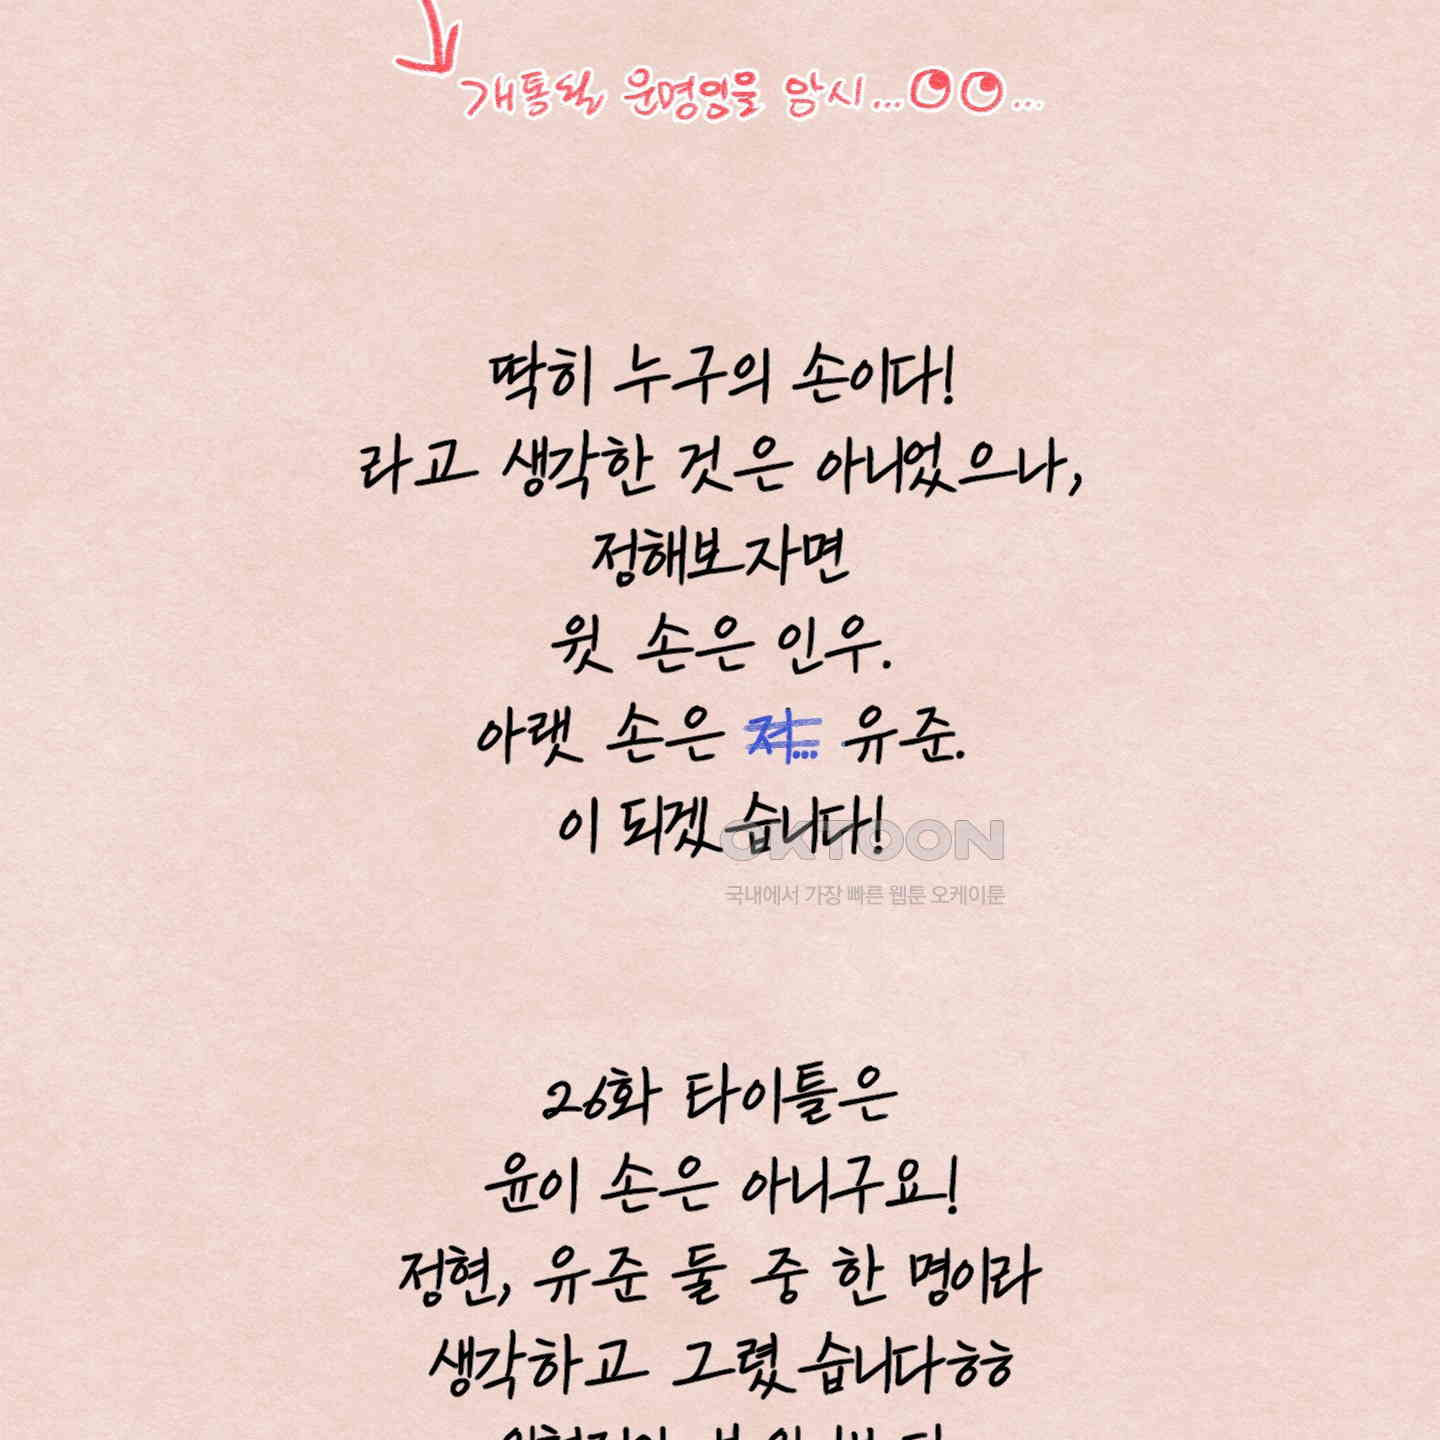 개통될 운명임을 암시...
딱히 누구의 손이다!
라고 생각한 것은 아니었으나,
정해보자면
윗 손은 인우.
아랫 손은 저... 유준.
이 되겠습니다!
OKTOON
국내에서 가장 빠른 웹툰 오케이툰
26화 타이틀은
윤이 손은 아니구요!
정현, 유준 둘 중 한 명이라
생각하고 그렸습니다ㅎㅎ